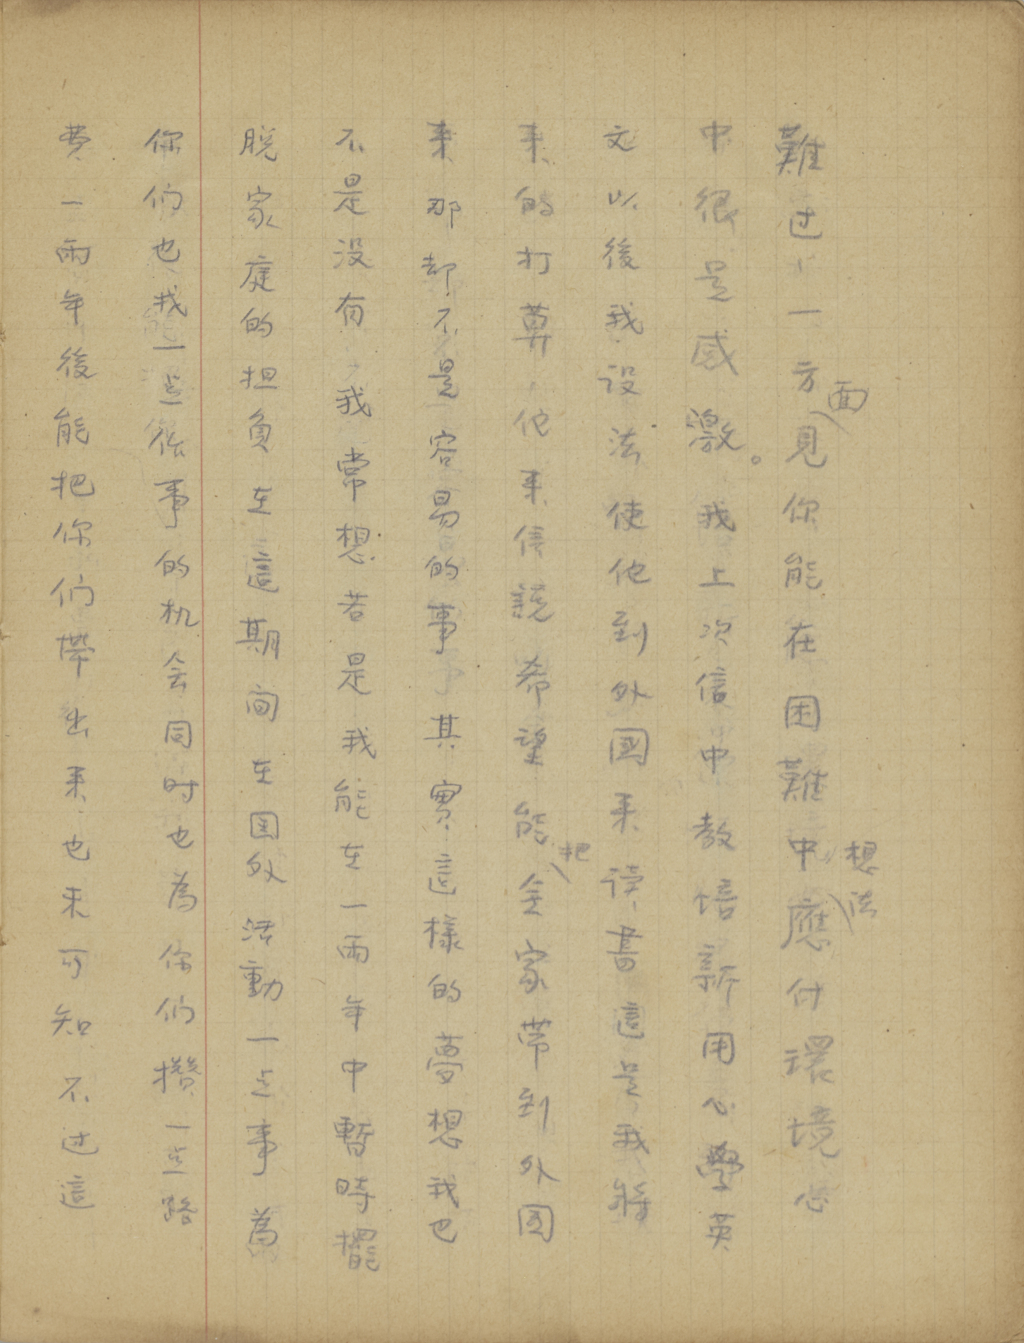 難过，一方面見你能在困難中想法應付環境心
中很是感激。我上次信中教培新用心學英
文以後我设法使他到外國来读書這是我將
来的打算，他来信說希望能把全家带到外国
来那却不是容易的事其實這樣的夢想我也
不是没有，我常想若是我能在一兩年中暫時擺
脱家庭的担負在這期间在国外活動一点事為
你们也我一点後事的机会同时也為你们攢一点路
費一兩年後能把你们帶出来也未可知不过這